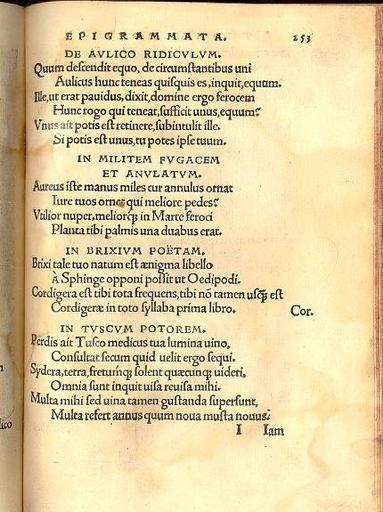 EPIGRAMMATA. 253
DE AVLICO RIDICVLVM.
Quum descendit equo, de circumstantibus uni
Aulicus hunc teneas quisquis es, inquit, equum.
Ille, ut erat pauidus, dixit, domine ergo ferocem
Hunc rogo qui teneat, sufficit unus, equum?
Vnus ait potis est retinere, subintulit ille.
Si potis est unus, tu potes ipse tuum.
IN MILITEM FVGACEM
ET ANVLATVM.
Aureus iste manus miles cur annulus ornat
Iure tuos ornet qui meliore pedes?
Vtilior nuper, meliorq́; in Marte feroci
Planta tibi palmis una duabus erat.
IN BRIXIVM POËTAM.
Brixi tale tuo natum est ænigma libello
À Sphinge opponi possit ut Oedipodi.
Cordigera est tibi tota frequens, tibi nõ tamen usq̃; est
Cordigeræ in toto syllaba prima libro. Cor.
IN TVSCVM POTOREM.
Perdis ait Tusco medicus tua lumina uino,
Consultat secum quid uelit ergo sequi.
Sydera, terra, fretumq́; solent quæcunq; uideri,
Omnia sunt inquit uisa reuisa mihi.
Multa mihi sed uina tamen gustanda supersunt,
Multa refert annus quum noua musta nouus.
I Iam